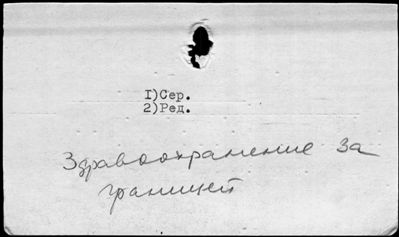 1)Сер.
2)Ред.
Здравоохранение за
границей